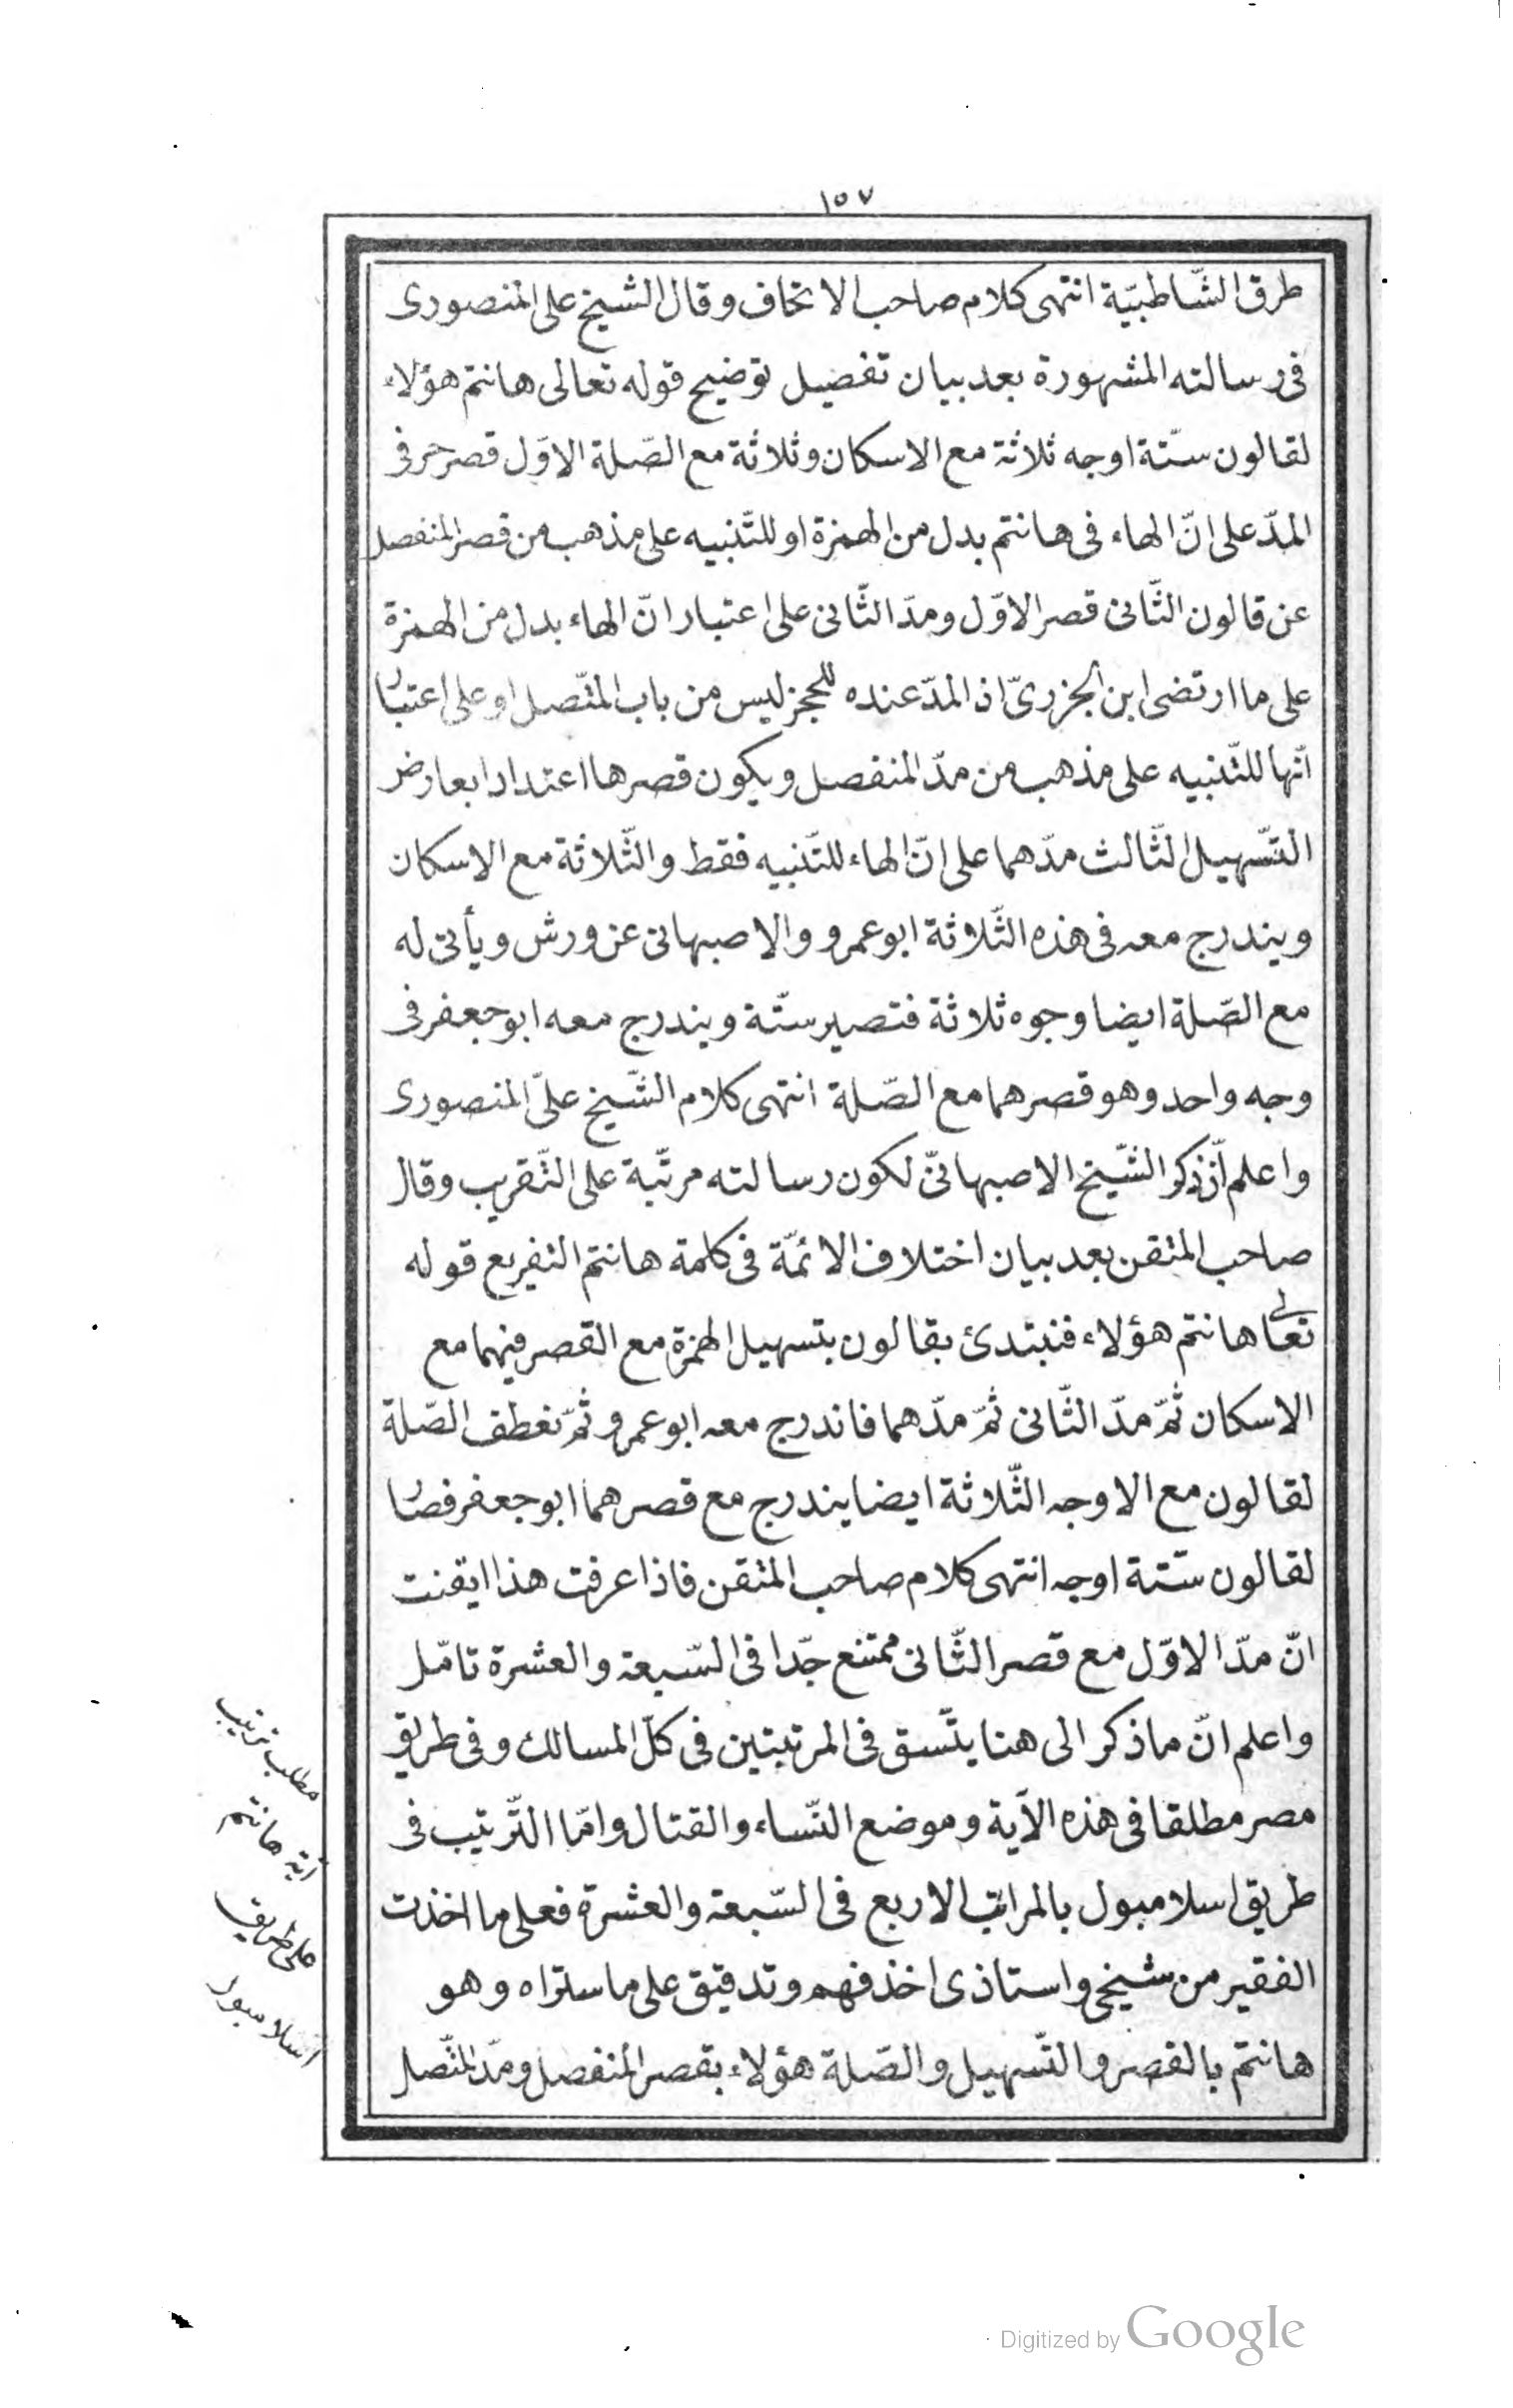 ١٥٧
طرق الشّاطبيّة انتهى كلام صاحب الاتحاف وقال الشيخ على المنصورى
فى رسالته المشهورة بعد بيان تفصيل توضيح قوله تعالى هانتم هؤلاء
لقالون ستّة اوجه ثلاثة مع الاسكان وثلاثة مع الصّلة الاوّل قصر حرفى
المدّ على انّ الهاء فى هانتم بدل من الهمزة او للتّنبيه على مذهب من قصر المنفصل
عن قالون الثّانى قصر الاوّل ومدّ الثّانى على اعتبار انّ الهاء بدل من الهمزة
على ما ارتضى ابن الجزرىّ اذ المدّ عنده للحجز ليس من باب المتّصل او على اعتبار
انّها للتّنبيه على مذهب من مدّ المنفصل ويكون قصرها اعتدادا بعارض
التّسهيل الثّالث مدّهما على انّ الهاء للتّنبيه فقط والثّلاثة مع الاسكان
ويندرج معه فى هذه الثّلاثة ابو عمرو والاصبهانى عن ورش ويأتى له
مع الصّلة ايضا وجوه ثلاثة فتصير ستّة ويندرج معه ابو جعفر فى
وجه واحد وهو قصرهما مع الصّلة انتهى كلام الشّيخ علىّ المنصورى
واعلم انّ ذكر الشّيخ الاصبهانىّ لكون رسالته مرتّبة على التّقريب وقال
صاحب المتقن بعد بيان اختلاف الائمّة فى كلمة هانتم التفريع قوله
تعالى هانتم هؤلاء فنبتدئ بقالون بتسهيل الهمزة مع القصر فيهما مع
الاسكان ثمّ مدّ الثّانى ثمّ مدّهما فاندرج معه ابو عمرو ثمّ نعطف الصّلة
لقالون مع الاوجه الثّلاثة ايضا يندرج مع قصرهما ابو جعفر فصار
لقالون ستّة اوجه انتهى كلام صاحب المتقن فاذا عرفت هذا ايقنت
انّ مدّ الاوّل مع قصر الثّانى ممتنع جدّا فى السّبعة والعشرة تامّل
واعلم انّ ما ذكر الى هنا يتّسق فى المرتبتين فى كلّ المسالك وفى طريق
مصر مطلقا فى هذه الآية وموضع النّساء والقتال وامّا التّرتيب فى
طريق اسلامبول بالمراتب الاربع فى السّبعة والعشرة فعلى ما اخذت
الفقير من شيخى واستاذى اخذ فهم وتدقيق على ما ستراه وهو
هانتم بالقصر والتّسهيل والصّلة هؤلاء بقصر المنفصل ومدّ المتّصل
مطلب ترتيب
آية هانتم
على طريق
اسلامبول
Digitized by Google